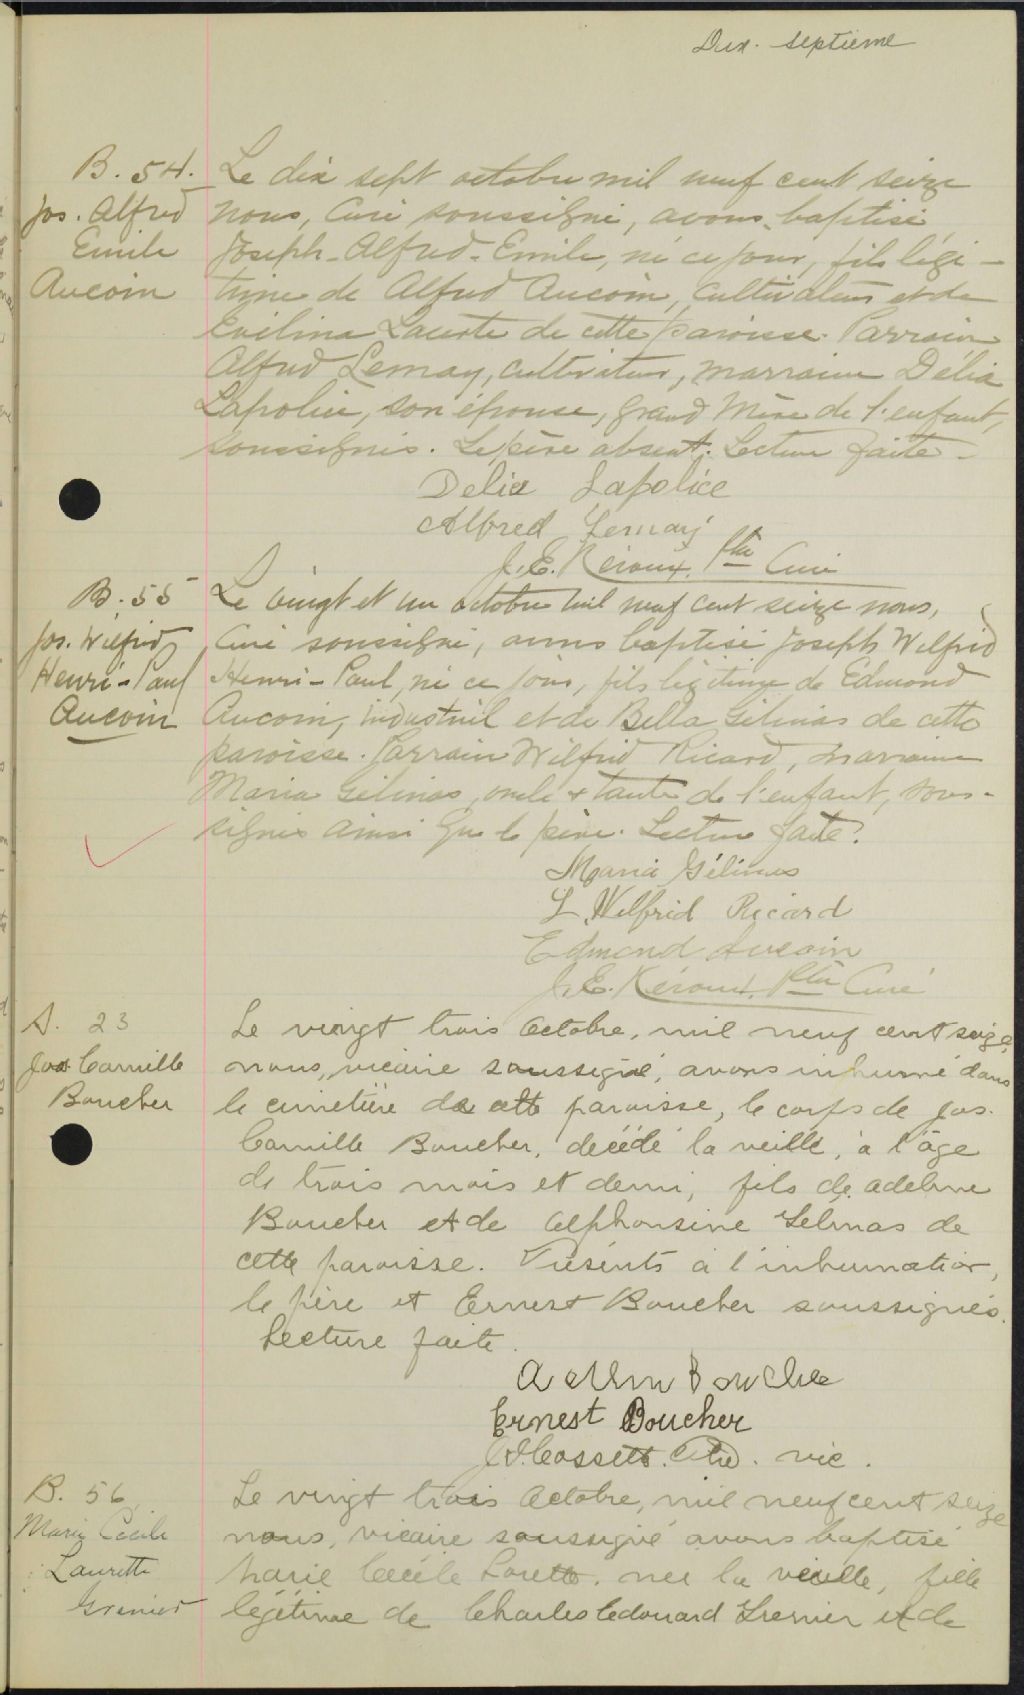 Dix-septième
B. 54.
Jos. Alfred
Emile
Aucoin
Le dix sept octobre mil neuf cent seize
nous, Curé soussigné, avons baptisé
Joseph-Alfred-Emile, né ce jour, fils légi-
time de Alfred Aucoin, cultivateur et de
Evélina de cette paroisse. Parrain
Alfred Lemay, cultivateur, marraine Délia
Lapolice, son épouse, grand Mère de l'enfant,
soussignés. Le père absent. Lecture faite.
Delia Lapolice
Alfred Lemay
J. E. Ptre Curé
B. 55
Jos. Wilfrid
Henri-Paul
Aucoin
Le vingt et un octobre mil neuf cent seize nous,
Curé soussigné, avons baptisé Joseph Wilfrid
Henri-Paul, né ce jour, fils légitime de Edmond
Aucoin, industriel et de Bella Gélinas de cette
paroisse. Parrain Wilfrid Ricard, marraine
Maria Gélinas, oncle & tante de l'enfant, sous-
signés ainsi que le père. Lecture faite.
Maria Gélinas
L. Wilfrid Ricard
Edmond Aucoin
J. E. Ptre Curé
S. 23
Jos Camille
Boucher
Le vingt trois Octobre, mil neuf cent seize,
nous, vicaire soussigné, avons inhumé dans
le cimetière de cette paroisse, le corps de Jos.
Camille Boucher, décédé la veille, à l'âge
de trois mois et demi, fils de
Boucher et de Alphonsine Gélinas de
cette paroisse. Présents à l'inhumation,
le père et Ernest Boucher soussignés.
Lecture faite.
Ernest Boucher
Ptre. vic.
B. 56
Marie Cécile
Laurette
Grenier
Le vingt trois Octobre, mil neuf cent seize
nous, vicaire soussigné avons baptisé
Marie Cécile Lorette. née la veille, fille
légitime de Charles Edouard Grenier et de